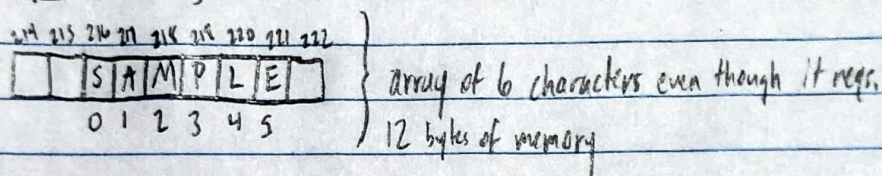 214 215 216 217 218 219 220 221 222
S A M P L E
array of 6 characters even though it reqs.
0 1 2 3 4 5
12 bytes of memory